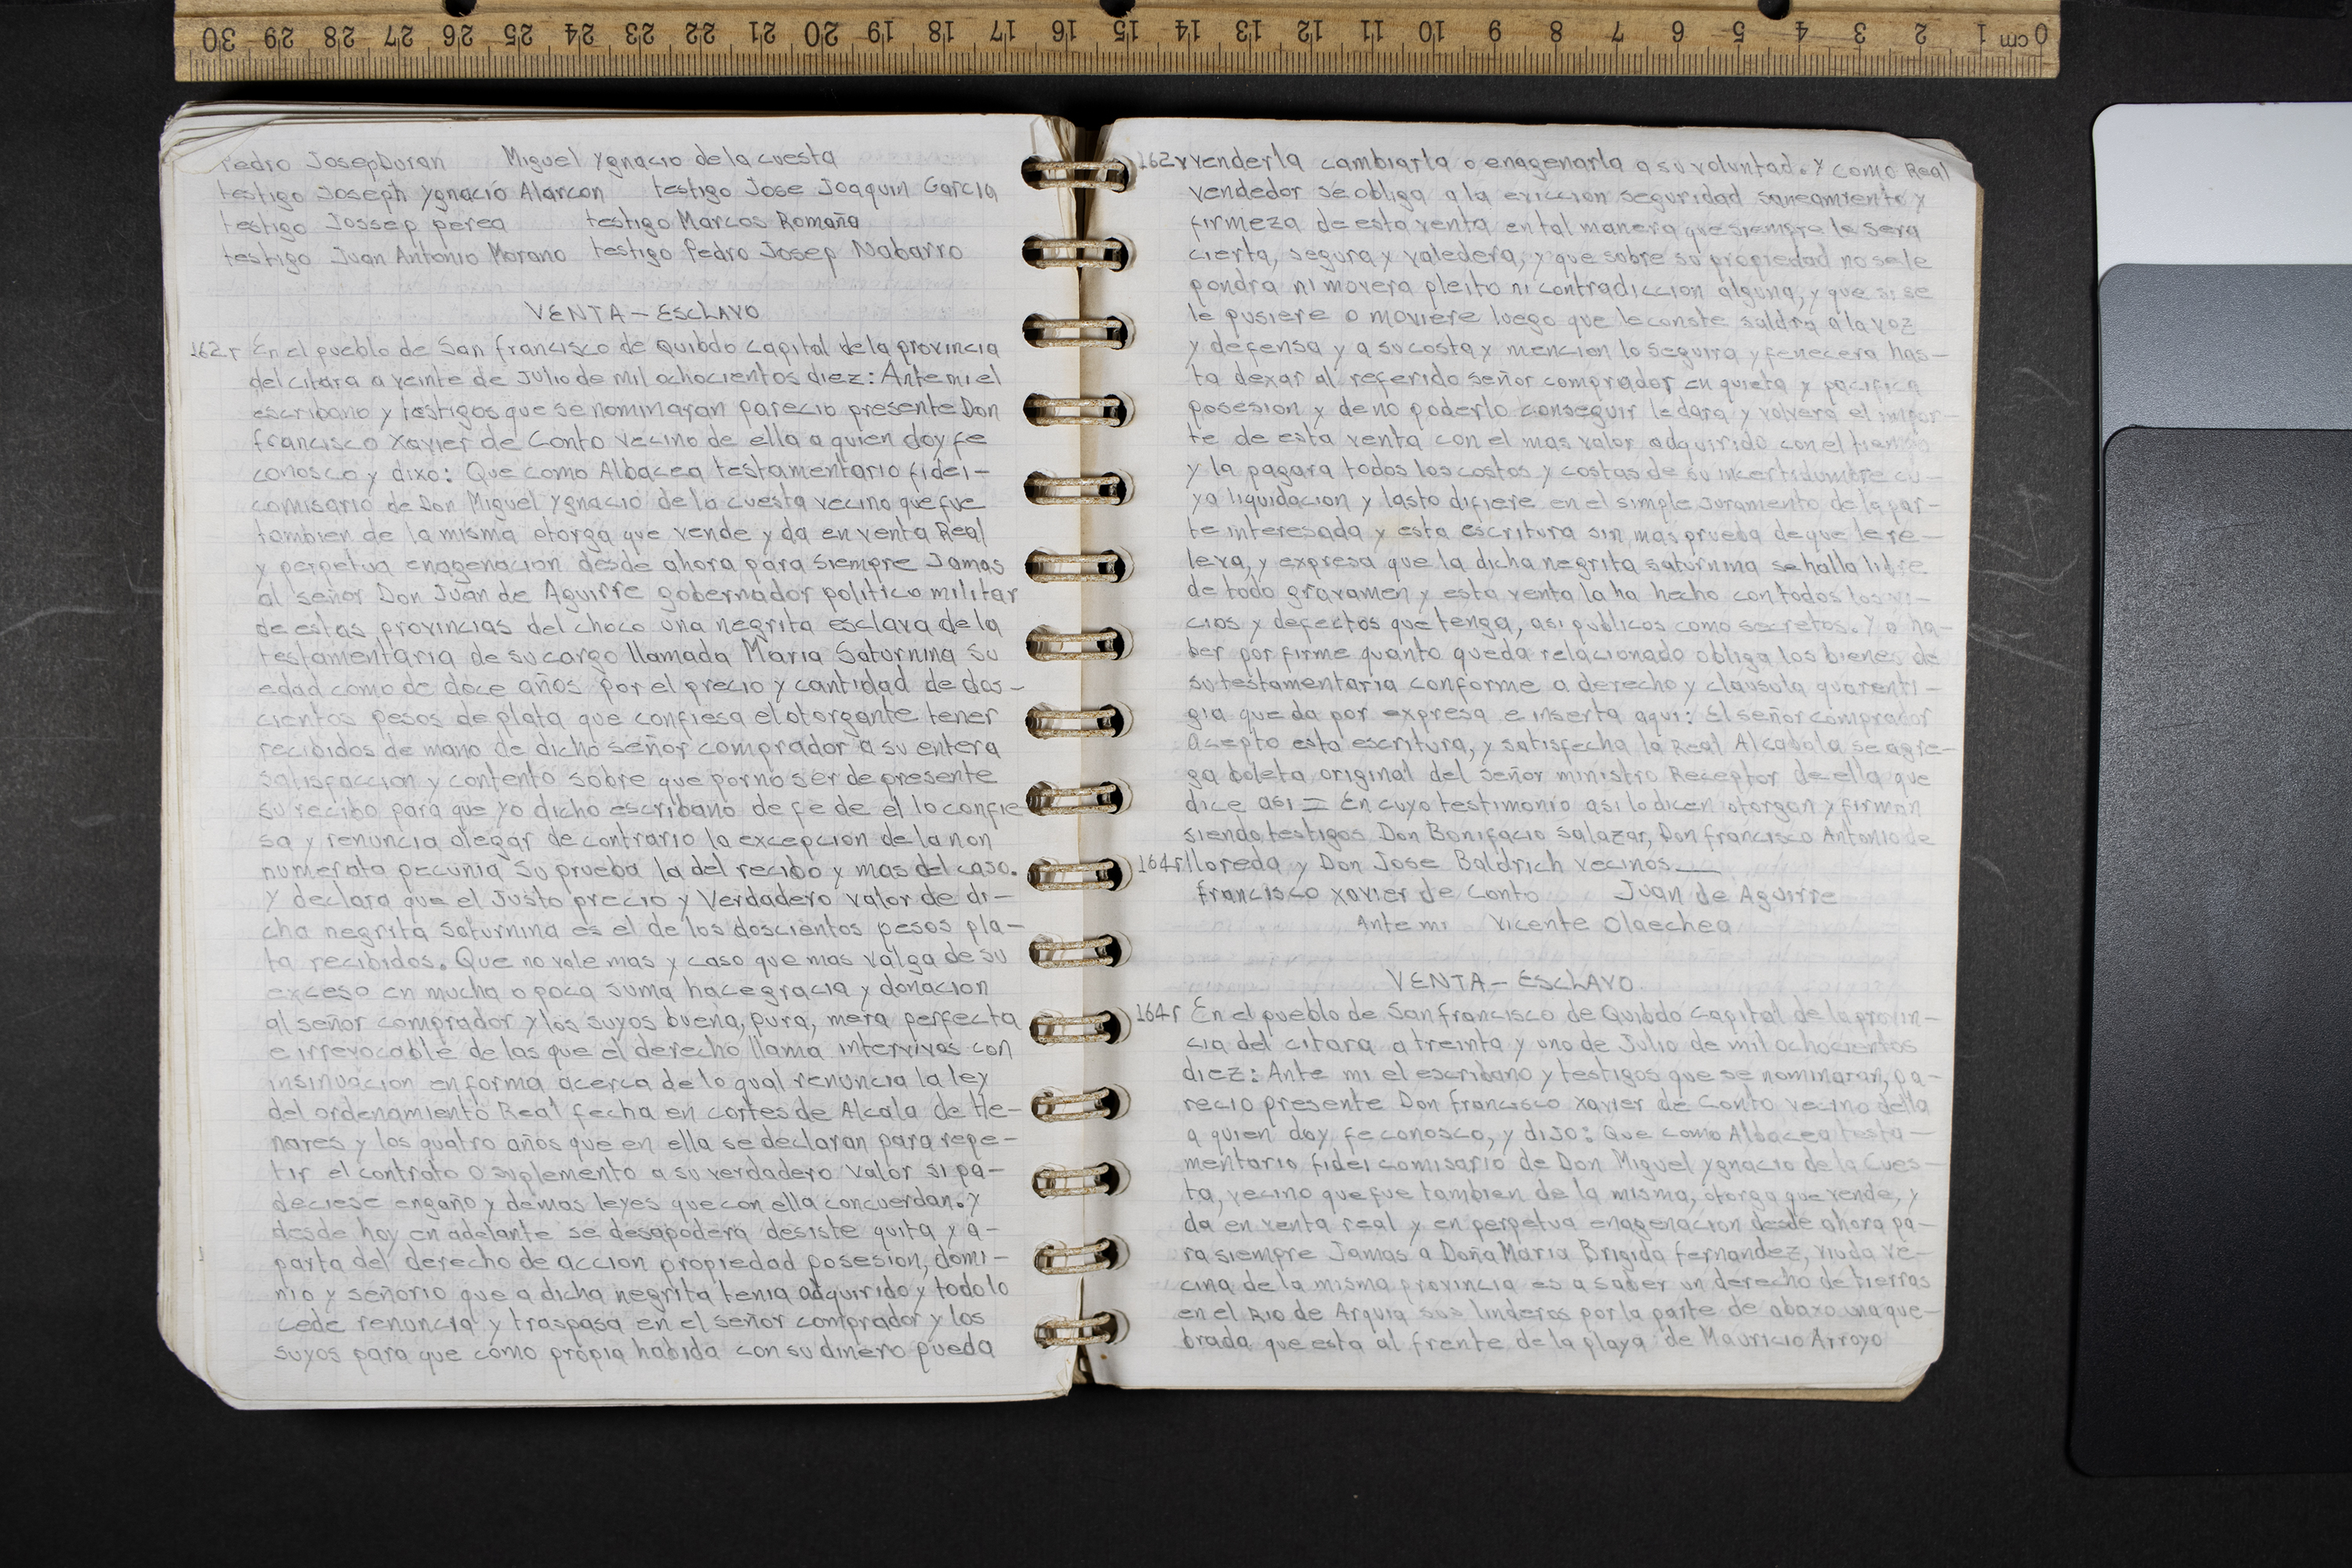 30 29 28 27 26 25 24 23 22 21 20 19 18 17 16 15 14 13 12 11 10 9 8 7 6 5 4 3 2 1 cm 0
Pedro Josep Duran Miguel Ygnacio de la cuesta
testigo Joseph Ygnacio Alarcon testigo Jose Joaquin Garcia
testigo Jossep perea testigo Marcos Romaña
testigo Juan Antonio Morano testigo Pedro Josep Nabarro
VENTA - ESCLAVO
162r En el pueblo de San francisco de Quibdo capital de la provincia
del citara a veinte de Julio de mil ochocientos diez: Ante mi el
escribano y testigos que se nominaran parecio presente Don
francisco Xavier de Conto vecino de ella a quien doy fe
conosco y dixo: Que como Albacea testamentario fidei-
comisario de Don Miguel Ygnacio de la cuesta vecino que fue
tambien de la misma otorga que vende y da en venta Real
y perpetua enagenacion desde ahora para siempre Jamas
al señor Don Juan de Aguirre gobernador politico militar
de estas provincias del choco una negrita esclava de la
testamentaria de su cargo llamada Maria Saturnina su
edad como de doce años por el precio y cantidad de dos-
cientos pesos de plata que confiesa el otorgante tener
recibidos de mano de dicho señor comprador a su entera
satisfaccion y contento sobre que por no ser de presente
su recibo para que yo dicho escribano de fe de el lo confie
sa y renuncia alegar de contrario la excepcion de la non
numerata pecunia su prueba la del recibo y mas del caso.
Y declara que el Justo precio y Verdadero valor de di-
cha negrita Saturnina es el de los doscientos pesos pla-
ta recibidos. Que no vale mas y caso que mas valga de su
exceso en mucha o poca suma hace gracia y donacion
al señor comprador y los suyos buena, pura, mera perfecta
e irrevocable de las que el derecho llama intervivos con
insinuacion en forma acerca de lo qual renuncia la ley
del ordenamiento Real fecha en cortes de Alcala de He-
nares y los quatro años que en ella se declaran para repe-
tir el contrato o suplemento a su verdadero valor si pa-
deciese engaño y demas leyes que con ella concuerdan. Y
desde hoy en adelante se desapodera desiste quita y a-
parta del derecho de accion propiedad posesion, domi-
nio y señorio que a dicha negrita tenia adquirido y todo lo
cede renuncia y traspasa en el señor comprador y los
suyos para que como propia habida con su dinero pueda
162v venderla cambiarla o enagenarla a su voluntad. Y como Real
vendedor se obliga a la eviccion seguridad saneamiento y
firmeza de esta venta en tal manera que siempre le sera
cierta, segura y valedera, y que sobre su propiedad no se le
pondra ni movera pleito ni contradiccion alguna, y que si se
le pusiere o moviere luego que le conste saldra a la voz
y defensa y a su costa y mencion lo seguira y fenecera has-
ta dexar al referido señor comprador en quieta y pacifica
posesion y de no poderlo conseguir le dara y volvera el impor-
te de esta venta con el mas valor adquirido con el tiempo
y la pagara todos los costos y costas de su incertidumbre cu-
ya liquidacion y lasto difiere en el simple Juramento de la par-
te interesada y esta escritura sin mas prueba de que le re-
leva, y expresa que la dicha negrita saturnina se halla libre
de todo gravamen y esta venta la ha hecho con todos los vi-
cios y defectos que tenga, asi publicos como secretos. Y a ha-
ber por firme quanto queda relacionado obliga los bienes de
su testamentaria conforme a derecho y clausula quarenti-
gia que da por expresa e inserta aqui: El señor comprador
acepto esta escritura, y satisfecha la Real Alcabala se agre-
ga boleta original del señor ministro Receptor de ella que
dice asi = En cuyo testimonio asi lo dicen otorgan y firman
siendo testigos Don Bonifacio Salazar, Don francisco Antonio de
164r lloreda y Don Jose Baldrich vecinos
francisco Xavier de Conto Juan de Aguirre
Ante mi Vicente Olaechea
VENTA - ESCLAVO
164r En el pueblo de San francisco de Quibdo capital de la provin-
cia del citara a treinta y uno de Julio de mil ochocientos
diez: Ante mi el escribano y testigos que se nominaran, pa-
recio presente Don francisco Xavier de Conto vecino della
a quien doy fe conosco, y diJo: Que como Albacea testa-
mentario fidei comisario de Don Miguel Ygnacio de la Cues-
ta, vecino que fue tambien de la misma, otorga que vende, y
da en venta real y en perpetua enagenacion desde ahora pa-
ra siempre Jamas a Doña Maria Brigida fernandez, viuda ve-
cina de la misma provincia es a saber un derecho de tierras
en el Rio de Arquia sus linderos por la parte de abaxo una que-
brada que esta al frente de la playa de Mauricio Arroyo